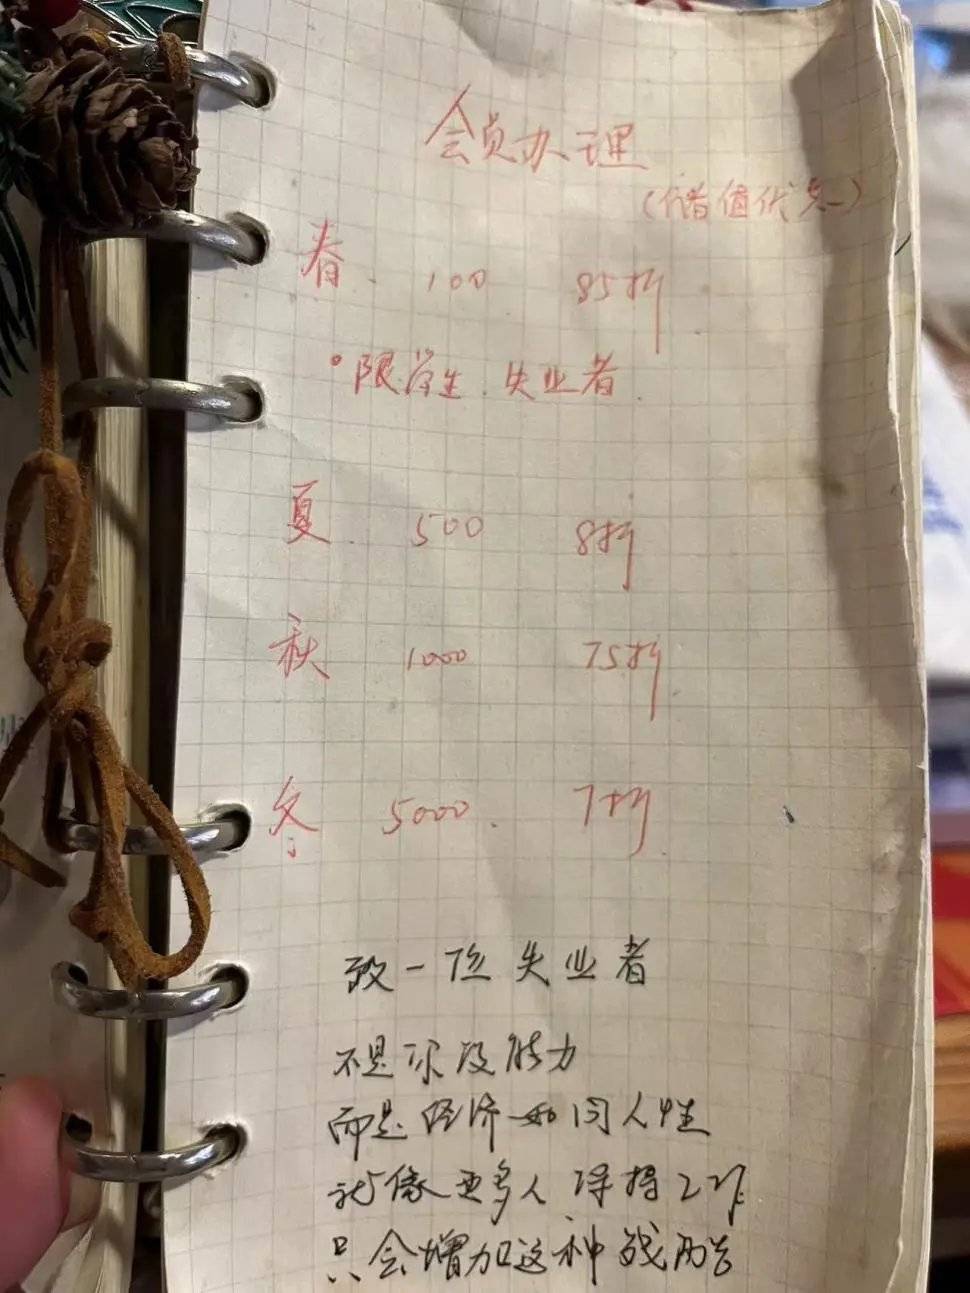 会员办理
(储值优点)
春. 100 85折
·限学生.失业者.
夏. 500 8折
秋 1000 75折
冬 5000. 7折
致一位失业者
不是你没能力
而是经济如同人性
就像更多人得工作
只会增加这种